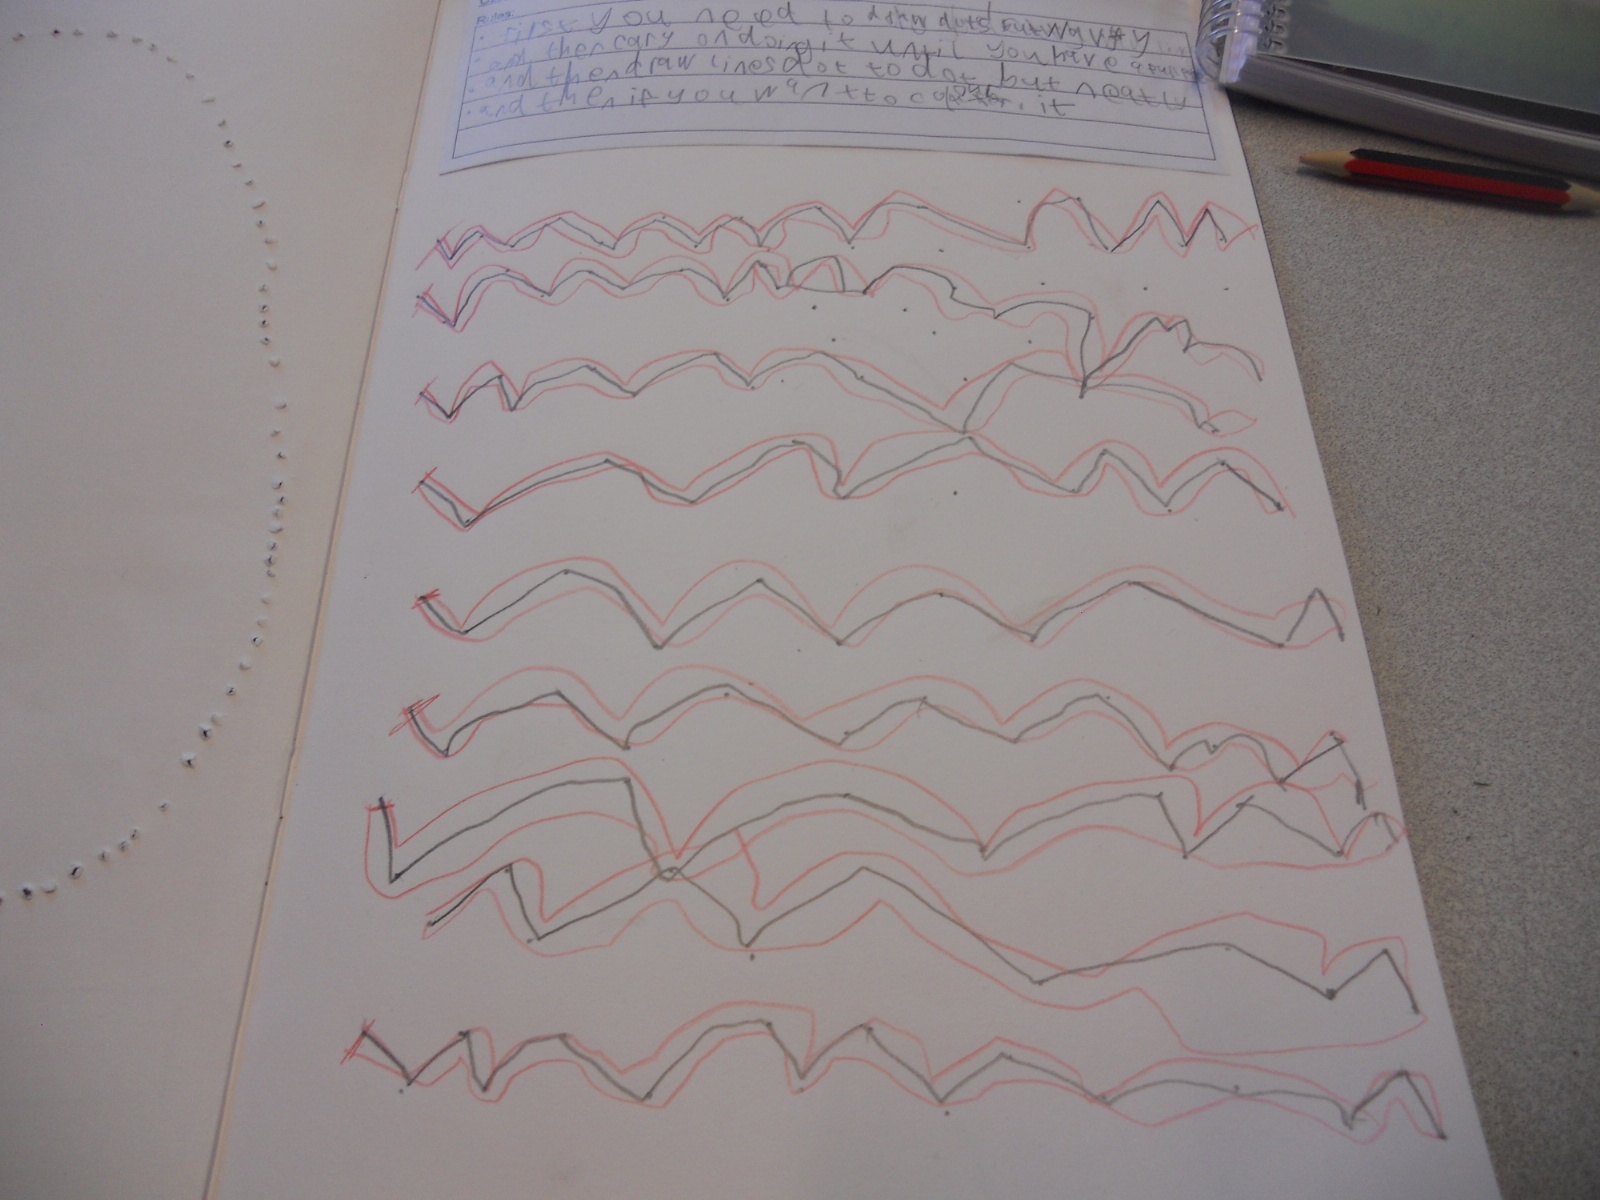 Rules:
· First you need to draw dots but wavy
· and then cary on doing it until you have a
· and then draw lines dot to dot but neatly
· and then if you want to it